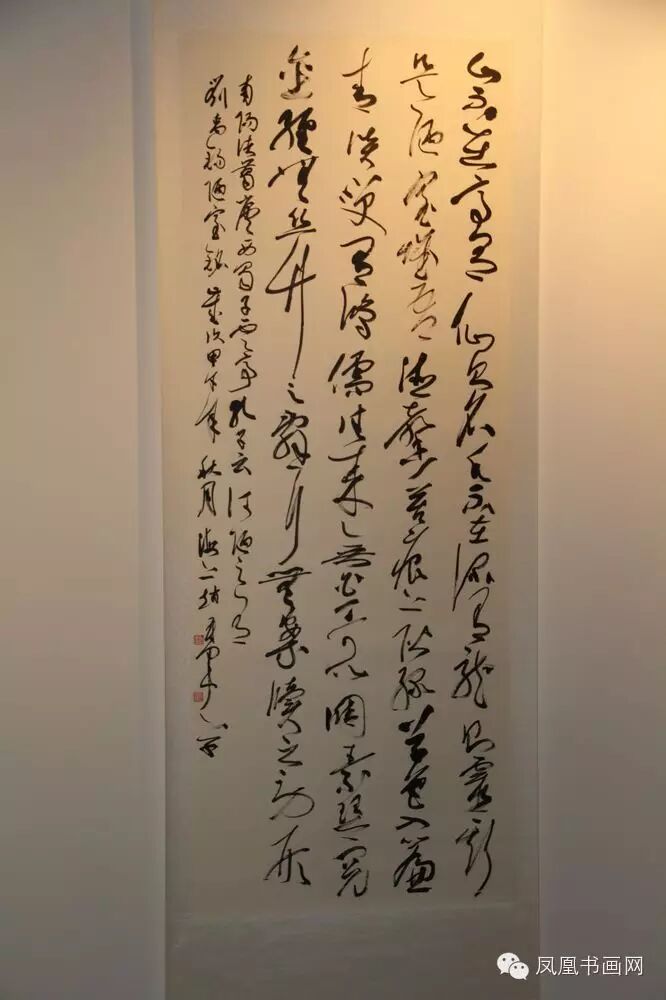 山不在高有仙則名水不在深有龍則靈斯
是陋室惟吾德馨苔痕上階綠草色入簾
青談笑有鴻儒往來無白丁可以調素琴閱
金經無絲竹之亂耳無案牘之勞形
南陽諸葛廬西蜀子雲亭孔子云何陋之有
劉禹錫陋室銘歲次甲午年秋月海上趙
凤凰书画网